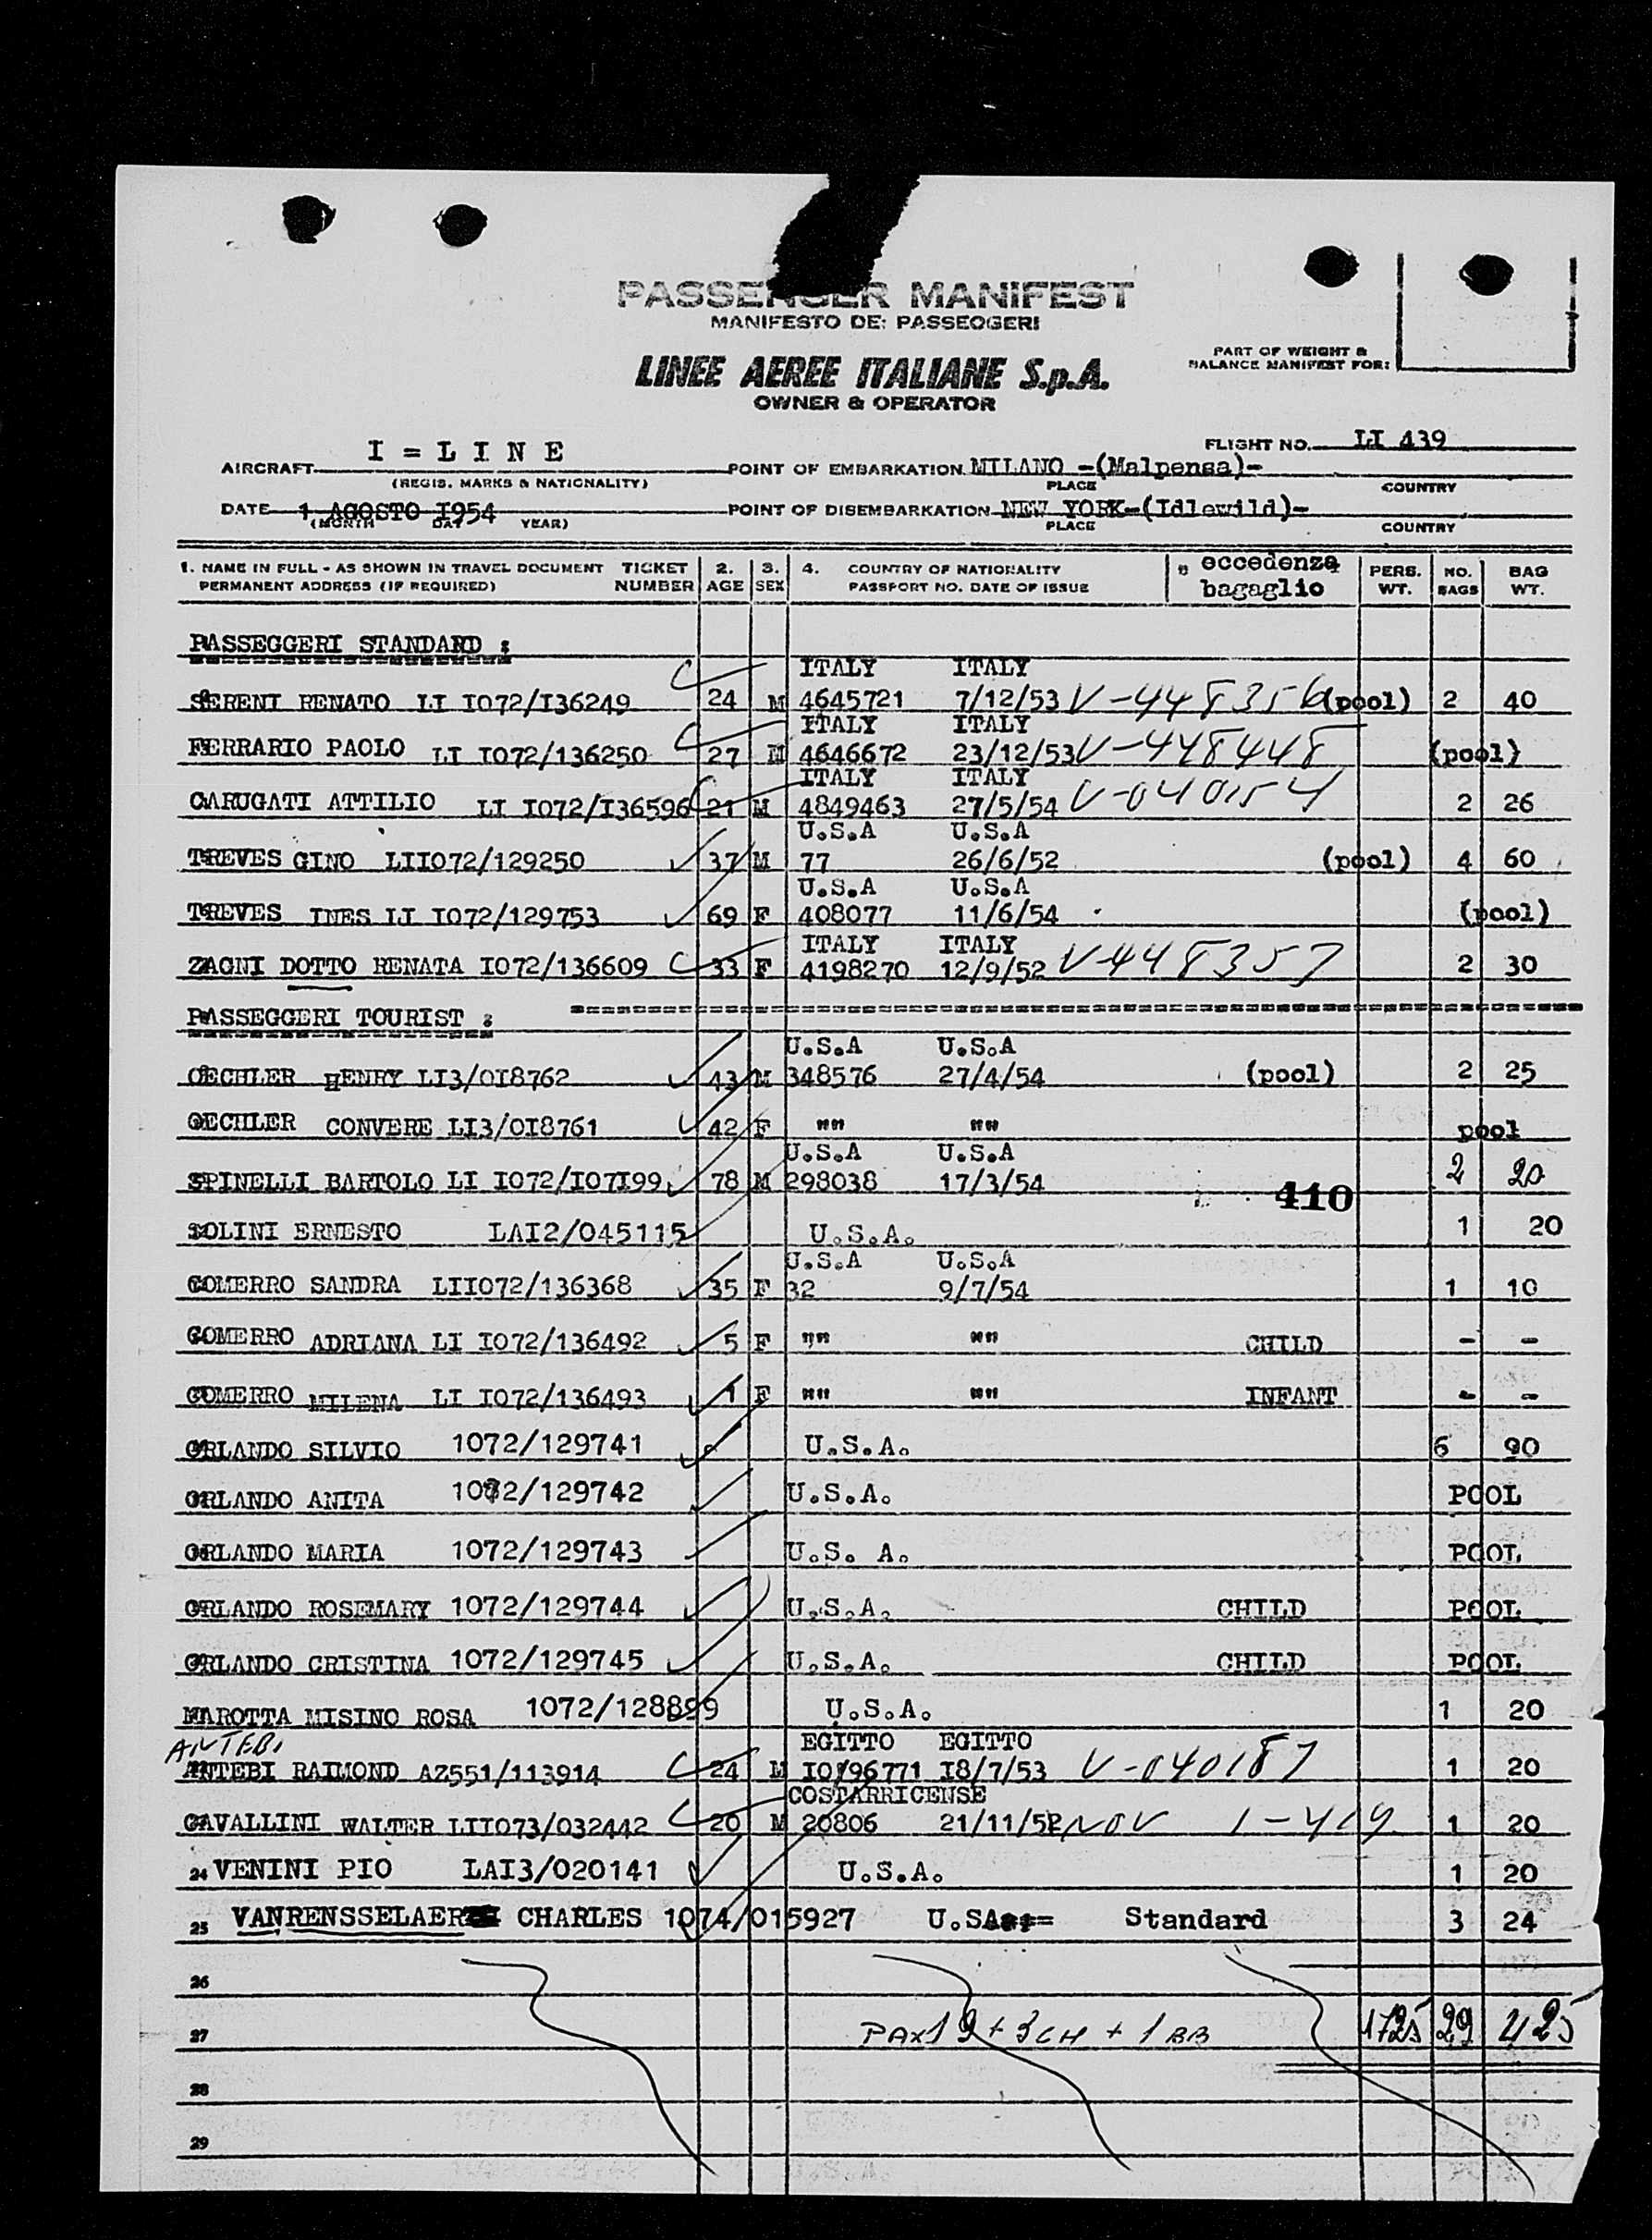 PASSENGER MANIFEST
MANIFESTO DE: PASSEOGERI
LINEE AEREE ITALIANE S.p.A.
OWNER & OPERATOR
PART OF WEIGHT &
BALANCE MANIFEST FOR:
AIRCRAFT I = L I N E
(REGIS. MARKS & NATIONALITY)
FLIGHT NO. LI 439
POINT OF EMBARKATION MILANO -(Malpensa)-
PLACE COUNTRY
DATE 1 AGOSTO I954
(MONTH DAY YEAR)
POINT OF DISEMBARKATION NEW YORK-(Idlewild)-
PLACE COUNTRY
1. NAME IN FULL - AS SHOWN IN TRAVEL DOCUMENT TICKET 2. 3. 4. COUNTRY OF NATIONALITY eccedenza PERS. NO. BAG
PERMANENT ADDRESS (IF REQUIRED) NUMBER AGE SEX PASSPORT NO. DATE OF ISSUE bagaglio WT. BAGS WT.
PASSEGGERI STANDARD :
ITALY ITALY
SERENI RENATO LI I072/I36249 24 M 4645721 7/12/53 V-448356 (pool) 2 40
ITALY ITALY
FERRARIO PAOLO LI I072/136250 27 M 4646672 23/12/53 V-448448 (pool)
ITALY ITALY
CARUGATI ATTILIO LI I072/I36596 21 M 4849463 27/5/54 V-040154 2 26
U.S.A U.S.A
TREVES GINO LII072/129250 37 M 77 26/6/52 (pool) 4 60
U.S.A U.S.A
TREVES INES LI I072/129753 69 F 408077 11/6/54 (pool)
ITALY ITALY
ZAGNI DOTTO RENATA I072/136609 33 F 4198270 12/9/52 V-448357 2 30
PASSEGGERI TOURIST :
U.S.A U.S.A
OECHLER HENRY LI3/0I8762 43 M 348576 27/4/54 (pool) 2 25
OECHLER CONVERE LI3/0I8761 42 F "" "" pool
U.S.A U.S.A
SPINELLI BARTOLO LI I072/I07I99 78 M 298038 17/3/54 2 20
410
SOLINI ERNESTO LAI2/045115 U.S.A. 1 20
U.S.A U.S.A
GOMERRO SANDRA LII072/136368 35 F 32 9/7/54 1 10
GOMERRO ADRIANA LI I072/136492 5 F "" "" CHILD - -
GOMERRO MILENA LI I072/136493 1 F "" "" INFANT - -
ORLANDO SILVIO 1072/129741 U.S.A. 6 90
ORLANDO ANITA 1072/129742 U.S.A. POOL
ORLANDO MARIA 1072/129743 U.S. A. POOL
ORLANDO ROSEMARY 1072/129744 U.S.A. CHILD POOL
ORLANDO CRISTINA 1072/129745 U.S.A. CHILD POOL
MAROTTA MISINO ROSA 1072/128899 U.S.A. 1 20
ANTEBI EGITTO EGITTO
ANTEBI RAIMOND AZ551/113914 24 M I0/96771 I8/7/53 V-040187 1 20
COSTARRICENSE
CAVALLINI WALTER LII073/032442 20 M 20806 21/11/52 NOV I-419 1 20
24 VENINI PIO LAI3/020141 U.S.A. 1 20
25 VANRENSSELAER CHARLES 1074/015927 U.SA Standard 3 24
26
27 PAX 19 + 3 CH + 1 BB 1725 29 425
28
29